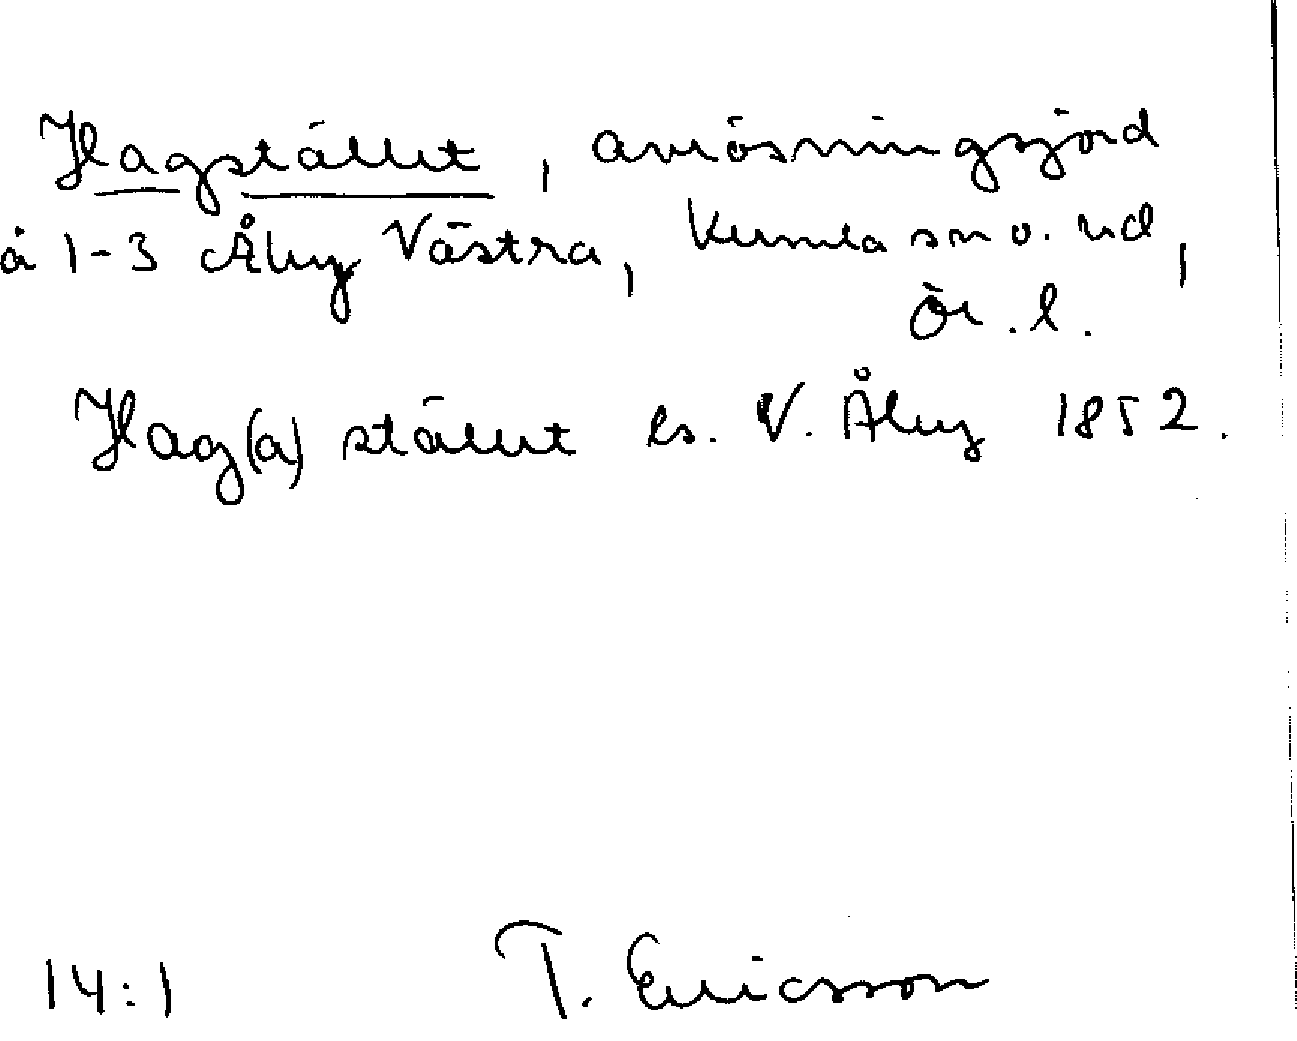 Hagstället, avrösningsjord
å 1-3 Åby Västra, Kumla sn o. hd,
Ör. l.
Hag(a) stället ls. V. Åby 1852.
14:1 T. Ericsson